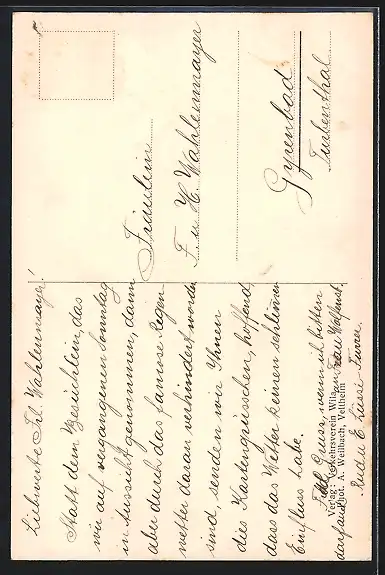 Fräulein
F. u. H. Wahlenmayer
Gyrenbad
Turbenthal
Liebwerte Frl. Wahlenmayer!
Statt dem Besüchlein, das
wir auf vergangenen Sonntag
in Aussicht genommen, dann
aber durch das famose Regen
wetter daran verhindert worden
sind, senden wir Ihnen
dies Kartengrüsschen, hoffend,
dass das Wetter keinen schlimmen
Einfluss habe.
Gruss, wenn ich bitten
darf auch an Frau
E.
Verlag: Verkehrsverein Wila
Phot: A. Weilbach, Veltheim